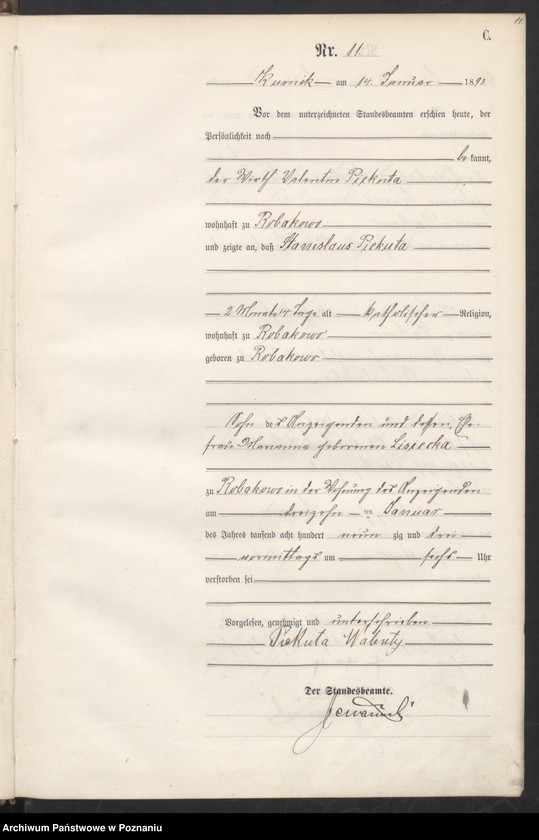 11
C.
Nr. 11.
Kurnik am 14. Januar 1893
Vor dem unterzeichneten Standesbeamten erschien heute, der
Persönlichkeit nach
be kannt,
der Wirth Valentin Piekuta
wohnhaft zu Robakowo
und zeigte an, daß Stanislaus Piekuta
2 Monate 14 Tage alt katholischer Religion,
wohnhaft zu Robakowo
geboren zu Robakowo
Sohn des Anzeigenden und dessen Ehe-
frau Marianna geborenen Lisiecka
zu Robakowo in der Wohnung des Anzeigenden
am dreizehn ten Januar
des Jahres tausend acht hundert neun zig und drei
vormittags um sechs Uhr
verstorben sei
Vorgelesen, genehmigt und unterschrieben
Piekuta Walenty
Der Standesbeamte.
Archiwum Państwowe w Poznaniu